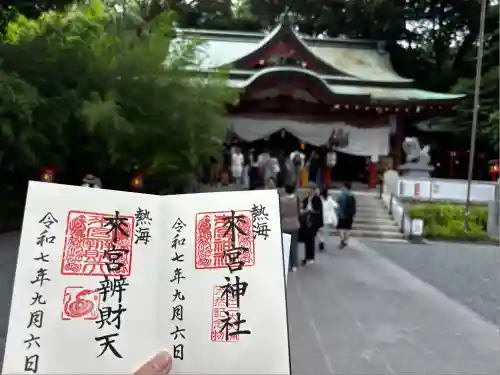 熱海
來宮神社
令和七年九月六日
熱海
來宮辨財天
令和七年九月六日